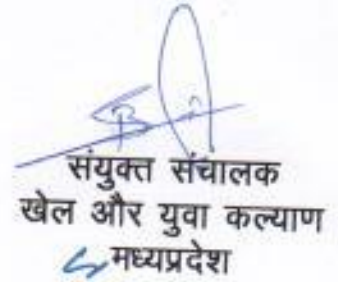 संयुक्त संचालक
खेल और युवा कल्याण
मध्यप्रदेश